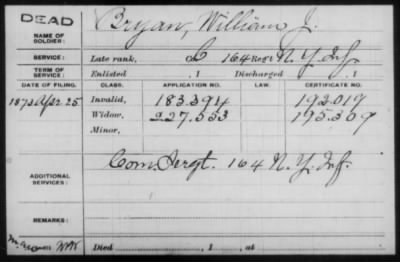 DEAD
NAME OF SOLDIER: Bryan, William J.
SERVICE: Late rank, Co. C 164 Reg't N.Y. Inf.
TERM OF SERVICE: Enlisted , 1 Discharged , 1
DATE OF FILING. CLASS. APPLICATION NO. LAW. CERTIFICATE NO.
1873 Apr. 25 Invalid, 183.394 192.019
Widow, 227.553 195.309
Minor,
ADDITIONAL SERVICES: Com. Sergt. 164 N.Y. Inf.
REMARKS:
Died , 1 , at